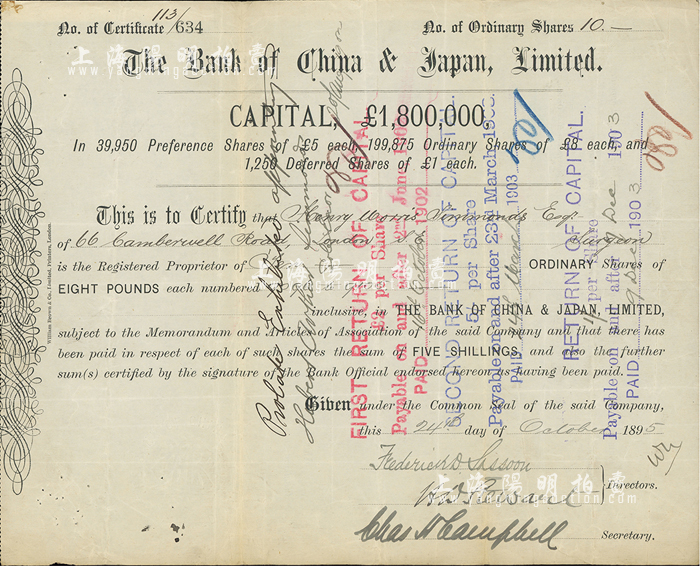 113/
No. of Certificate /634
No. of Ordinary Shares 10.—
上海陽明拍賣
The Bank of China & Japan, Limited.
CAPITAL, £1,800,000,
In 39,950 Preference Shares of £5 each, 199,875 Ordinary Shares of £8 each, and
1,250 Deferred Shares of £1 each.
This is to Certify that Henry Morris Simmonds Esqr
of 66 Camberwell Road, London Surgeon
is the Registered Proprietor of ORDINARY Shares of
EIGHT POUNDS each numbered
inclusive, in THE BANK OF CHINA & JAPAN, LIMITED,
subject to the Memorandum and Articles of Association of the said Company and that there has
been paid in respect of each of such shares the sum of FIVE SHILLINGS, and also the further
sum(s) certified by the signature of the Bank Official endorsed hereon as having been paid.
Given under the Common Seal of the said Company,
this 24th day of October 1895
Frederick D Sassoon
Directors.
Chas H Campbell
Secretary.
William Brown & Co. Limited, Printers, London.
Probate Exhibited
FIRST RETURN OF CAPITAL
per Share
Payable on and after 2nd June, 190
PAID 1902
SECOND RETURN OF CAPITAL
5/- per Share
Payable on and after 23rd March, 1903.
PAID March 1903
RETURN OF CAPITAL.
per Share
Payable on and after Dec 1903
PAID 9 Dec 1903
上海陽明拍賣
上海陽明拍賣